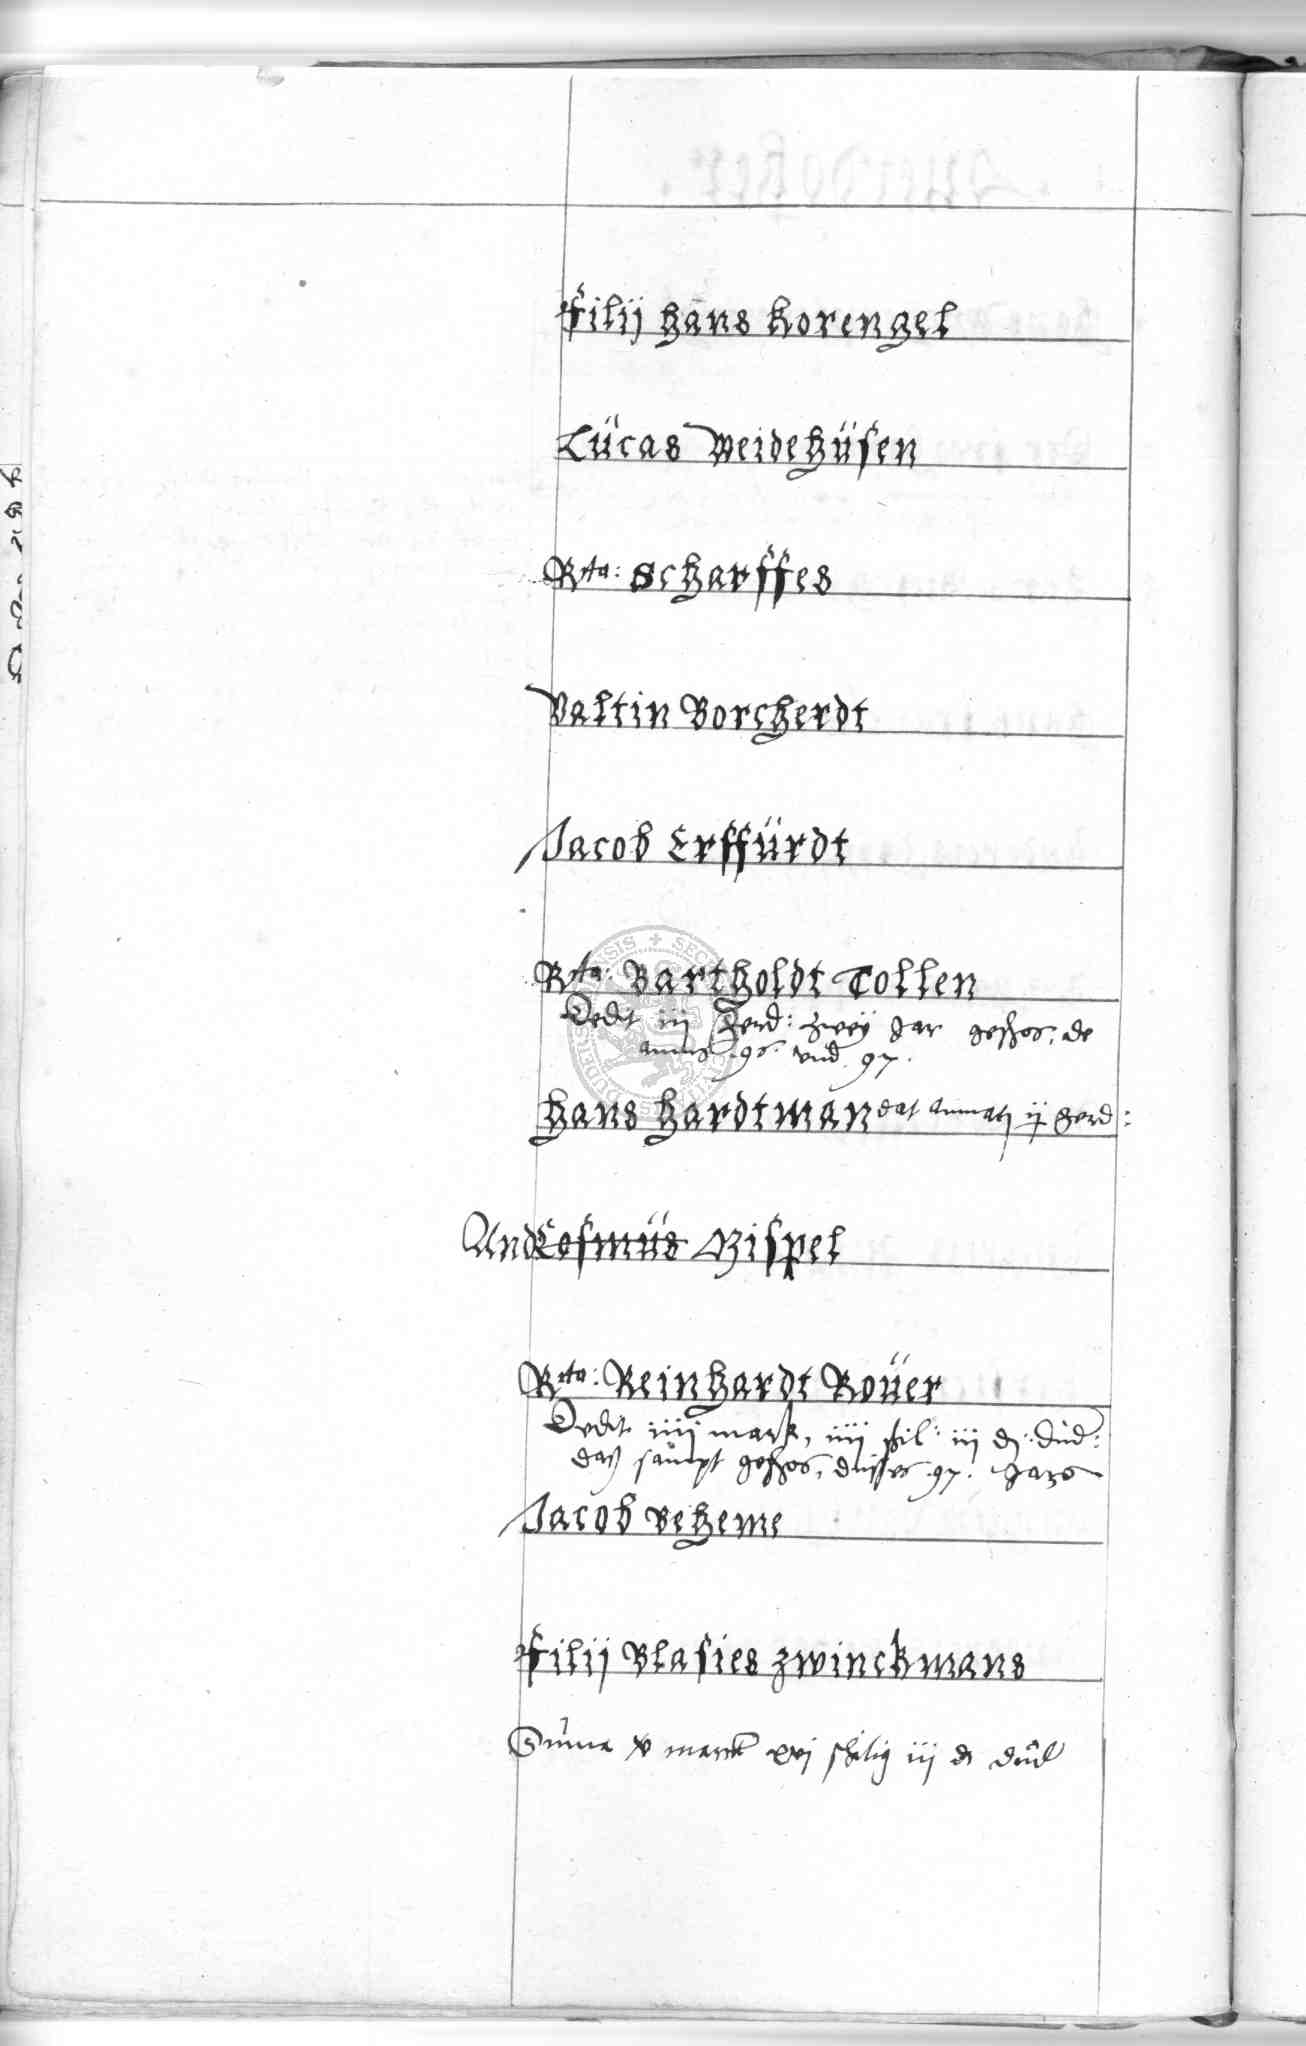 Filij Hans Korengel
Lücas Weidehüsen
Rta: Scharffes
Valtin Borcherdt
Jacob Erffürdt
Rta: Bartholdt Tollen
Dedit iij ferd: zweÿ Jar geschos, de
anno 96. vnd 97.
Hans Hardtman dat ij ferd:
And Cosmüs Gispel
Rta: Reinhardt Roüer
Dedit iiij mark, iiij schil: iij d: düd:
das sampt geschos, disses 97. Jars
Jacob Beheme
Filij Blasies Zwinckmans
Summa marck xvj schilig iij d düd